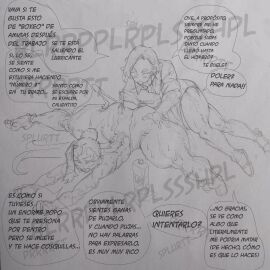 VAYA SI TE
GUSTA ESTO
DE "BOXEO" DE
AMIGAS DESPUÉS
DEL TRABAJO
SE TE ESTÁ
SALIENDO EL
LUBRICANTE
SI, LO SÉ,
SE SIENTE
COMO SI ME
ESTUVIERA HACIENDO
"NÚMERO 2"
EN TU BRAZO,
OYE, A PROPÓSITO,
SIEMPRE ME HE
PREGUNTADO,
CUANDO
LLEGO HASTA
EL HOMBRO?
TE DUELE?
DOLER?
PARA NADA!!
SPLURTT
ES COMO SI
TUVIESES
UN ENORME POPO
QUE TE PRESIONA
POR DENTRO
PERO SE MUEVE
Y TE HACE COSQUILLAS...
OBVIAMENTE
SIENTES GANAS
DE PUJARLO,
Y CUANDO PUJAS...
NO HAY PALABRAS
PARA EXPRESARLO,
ES MUY MUY RICO
QUIERES
INTENTARLO?
...NO GRACIAS,
SE VE COMO
ALGO QUE
LITERALMENTE
ME PODRÍA MATAR
(DE HECHO, CÓMO
ES QUE LO HACES)